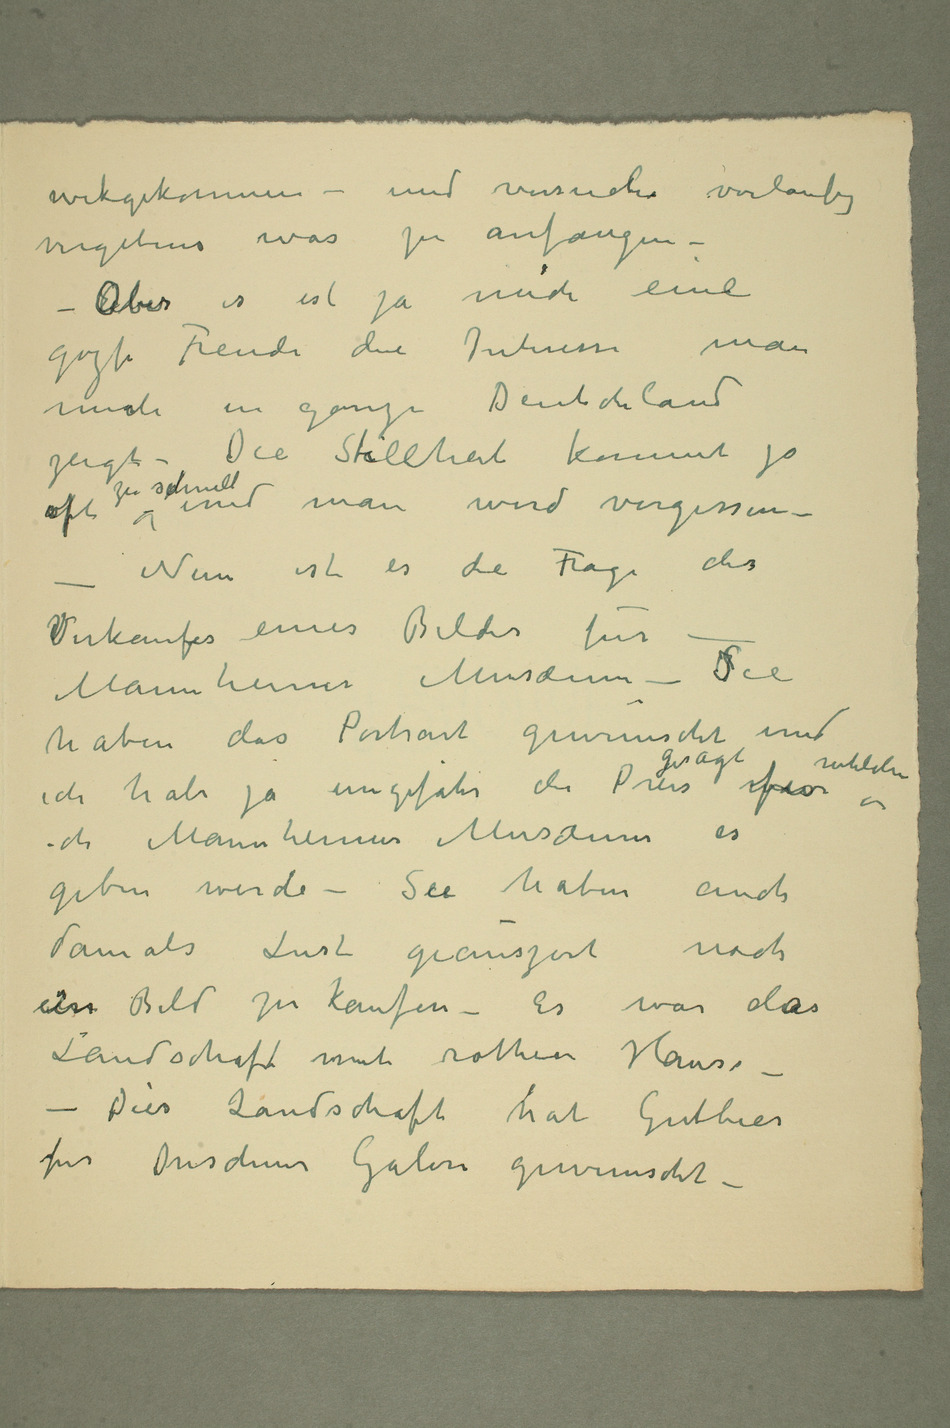 wekgekommen – und versuche vorlaufig
vergebens was zu anfangen –
– Aber es ist ja mich eine
gozse Freude die Interesse man
mich in ganze Deutchland
zeigt – Die Stillheit kommt ja
oft zu schnell und man wird vergessen –
– Nun ist es die Frage des
Verkaufes eines Bildes fur –
Mannheimer Musæum – Sie
haben das Portrait gewunscht und
ich habe ja ungefahr die Preis gesagt
ich Mannheimer Musæum es
geben werde – Sie haben auch
damals Lust geauszert noch
ein Bild zu kaufen – Es war das
Landschaft mit rothen Haus. –
– Dies Landschaft hat Gutbier
fur Dresdener Galeri gewunscht –